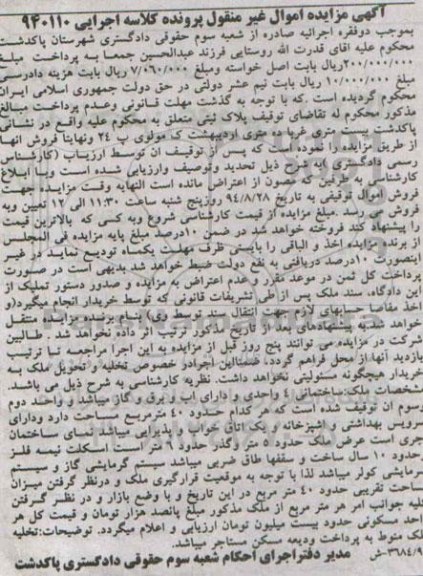 آگهی مزایده اموال غیر منقول پرونده کلاسه اجرایی ۹۴۰۱۱۰
بموجب دوفقره اجرائیه صادره از شعبه سوم حقوقی دادگستری شهرستان پاکدشت
محکوم علیه اقای قدرت الله روستایی فرزند عبدالحسین جمعا به پرداخت مبلغ
۲۰۰/۰۰۰/۰۰۰ریال بابت اصل خواسته ومبلغ ۷/۰۶۰/۰۰۰ ریال بابت هزینه دادرسی
مبلغ ۱۰/۰۰۰/۰۰۰ ریال بابت نیم عشر دولتی در حق دولت جمهوری اسلامی ایران
محکوم گردیده است .که با توجه به گذشت مهلت قانونی وعدم پرداخت مبالغ
مذکور محکوم له تقاضای توقیف پلاک ثبتی متعلق به محکوم علیه واقع در نشانی
پاکدشت بیست متری غربا ده متری اردیبهشت ک مولوی پ ۲۴ ونهایتا فروش انها
از طریق مزایده را نموده است که پس از توقیف ان توسط ارزیاب (کارشناس
رسمی دادگستری )به شرح ذیل تحدید وتوصیف وارزیابی شده است وبا ابلاغ
کارشناسی به طرفین که مصون از اعتراض مانده است النهایه وقت مزایده جهت
فروش اموال توقیفی به تاریخ ۹۴/۸/۲۸ روزپنج شنبه ساعت ۱۱:۳۰ الی ۱۲ تعیین وبه
فروش می رسد .مبلغ مزایده از قیمت کارشناسی شروع وبه کسی که بالاترین قیمت
را پیشنهاد کند فروخته خواهد شد در ضمن ۱۰درصد مبلغ پایه مزایده فی المجلس
از برنده مزایده اخذ و الباقی را بایستی ظرف مهلت یکماه تودیع نماید در غیر
اینصورت ۱۰درصد دریافتی به نفع دولت ضبط خواهد شد بدیهی است در صورت
پرداخت کل ثمن در موعد مقرر و عدم اعتراض به مزایده و صدور دستور تملیک از
این دادگاه، سند ملک پس از طی تشریفات قانونی که توسط خریدار انجام میگیرد(و
اخذ مفاصا حسابهای لازم جهت انتقال سند توسط وی) بنام برنده مزایده منتقل
خواهد شد به پیشنهادهای بعد از تاریخ مذکور ترتیب اثر داده نخواهد شد . طالبین
شرکت در مزایده می توانند پنج روز قبل از مزایده به این اجرا مراجعه تا ترتیب
بازدید آنها از محل فراهم گردد. ضمنااین اجرادر خصوص تخلیه و تحویل ملک به
خریدار هیچگونه مسئولیتی نخواهد داشت. نظریه کارشناسی به شرح ذیل می باشد.
مشخصات ملک: ساختمانی واحدی و دارای اب و برق و گاز میباشد . واحد دوم
وسوم ان توقیف شده است که هر کدام حدود ۴۰ مترمربع مساحت دارد ودارای
سرویس بهداشتی و اشپزخانه و یک اتاق خواب با پذیرایی میباشد نمای ساختمان
جری است عرض ملک حدود ۵ متر وگذر حدود ۹ متر است اسکلت نیمه فلز
حدود ۱۰ سال ساخت و سقفها طاق ضربی میباشد سیستم گرمایشی گاز و سیستم
سرمایشی کولر میباشد لذا با توجه به موقعیت قرارگیری ملک و درنظر گرفتن میزان
ساحت تقریبی حدود ۴۰ متر مربع در این تاریخ و با وضع بازار و در نظر گرفتن
کلیه جوانب امر هر متر مربع از ملک مذکور مبلغ پانصد هزار تومان و قیمت کل هر
واحد مسکونی حدود بیست میلیون تومان ارزیابی و اعلام میگردد. توضیحات:تخلیه
لک منوط به پرداخت ودیعه مسکن مستاجر میباشد.
۳۶۸۴/۹-ش مدیر دفتراجرای احکام شعبه سوم حقوقی دادگستری پاکدشت